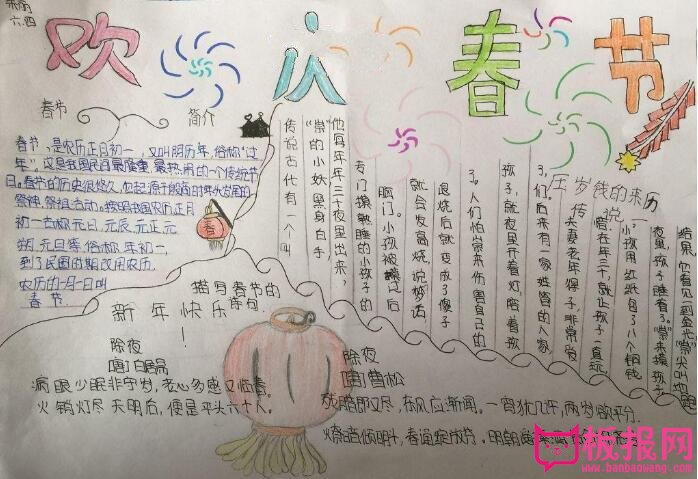 六.四
欢庆春节
春节
简介
春节,是农历正月初一,又叫阴历年,俗称“过
年”,这是我国民间最隆重、最热闹的一个传统节
日。春节的历史很悠久,它起源于殷商时期年头岁尾的
祭神祭祖活动。按照我国农历,正月
初一古称元日、元辰、元正、元
朔、元旦等,俗称年初一,
到了民国时期改用农历
农历的一月一日叫
春节
压岁钱的来历
传说
传说古代有一个叫
“祟”的小妖,黑身白手,
他每年年三十夜里出来,
专门摸熟睡的小孩子的
脑门。小孩被摸过后
就会发高烧说梦话
退烧后就变成了傻子
了。人们怕祟来伤害自己的
孩子,就夜里开着灯陪着孩
子。
们。后来有一家姓管的人家
夫妻老年得子,非常
在年三十,就让孩子一直玩
小孩用红纸包了八个铜钱
夜里,孩子睡着了。“祟”来摸孩子,
结果,
看见到金光“祟”尖叫地跑
描写春节的
诗句
新年快乐!
除夜
[唐]白居易
病眼少眠非守岁,老心多感又临春。
火销灯尽天明后,便是平头六十人。
除夜
[唐]曹松
残腊即又尽,东风应渐闻。一宵犹几许,两岁欲平分。
燎暗倾时斗,春通绽处芬。明朝
板报网
www.banbaowang.com